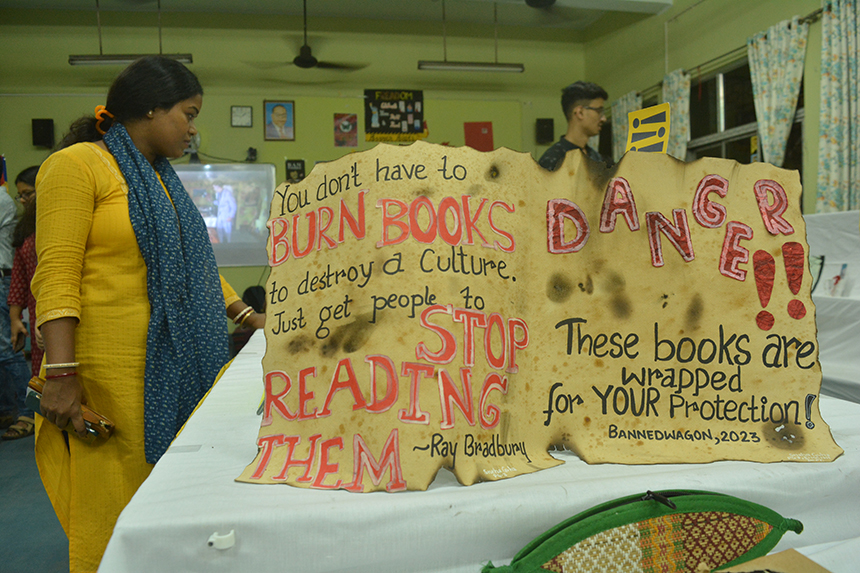 You don't have to
BURN BOOKS
to destroy a Culture.
Just get people to
STOP
READING
THEM
~Ray Bradbury
DANGER!!
These books are
wrapped
for YOUR Protection!
BANNEDWAGON, 2023
FREEDOM